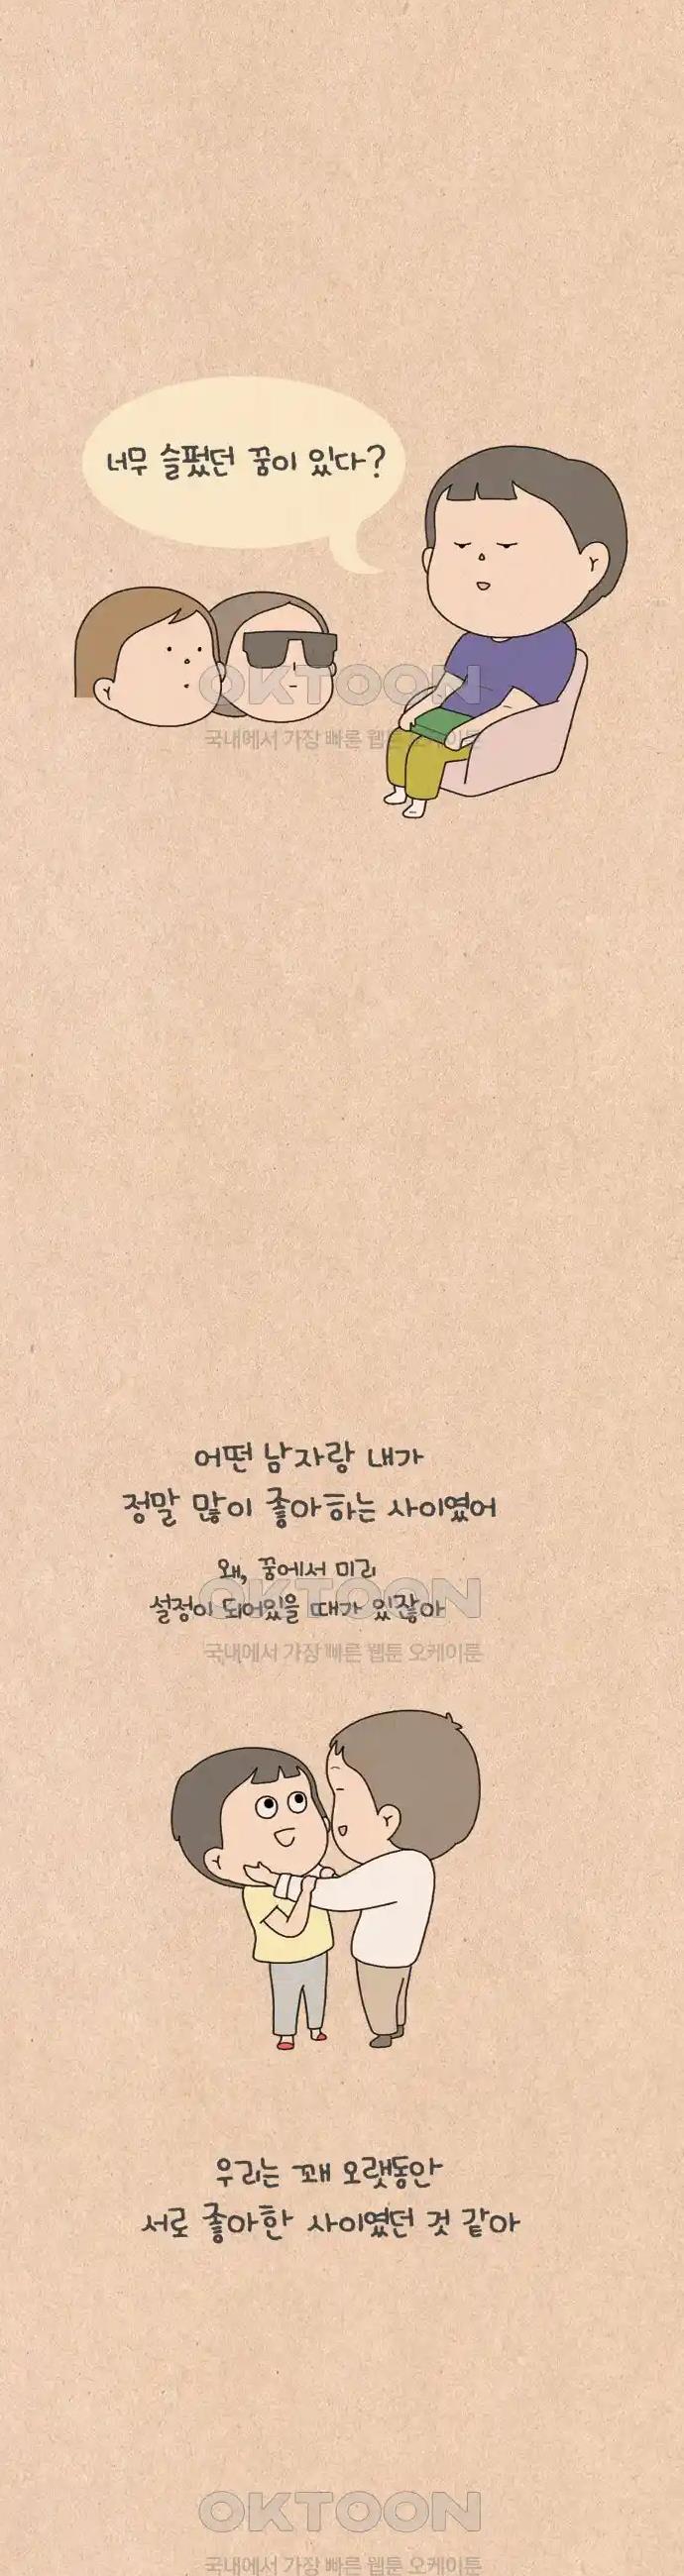 너무 슬펐던 꿈이 있다?
OKTOON
국내에서 가장 빠른 웹툰 오케이툰
어떤 남자랑 내가
정말 많이 좋아하는 사이였어
왜, 꿈에서 미리
설정이 되어있을 때가 있잖아
OKTOON
국내에서 가장 빠른 웹툰 오케이툰
우리는 꽤 오랫동안
서로 좋아한 사이였던 것 같아
OKTOON
국내에서 가장 빠른 웹툰 오케이툰